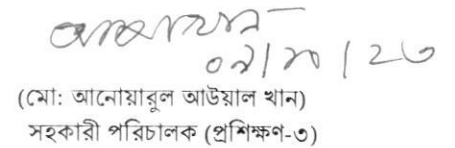 ০৯/১০/২৩
(মো: আনোয়ারুল আউয়াল খান)
সহকারী পরিচালক (প্রশিক্ষণ-৩)